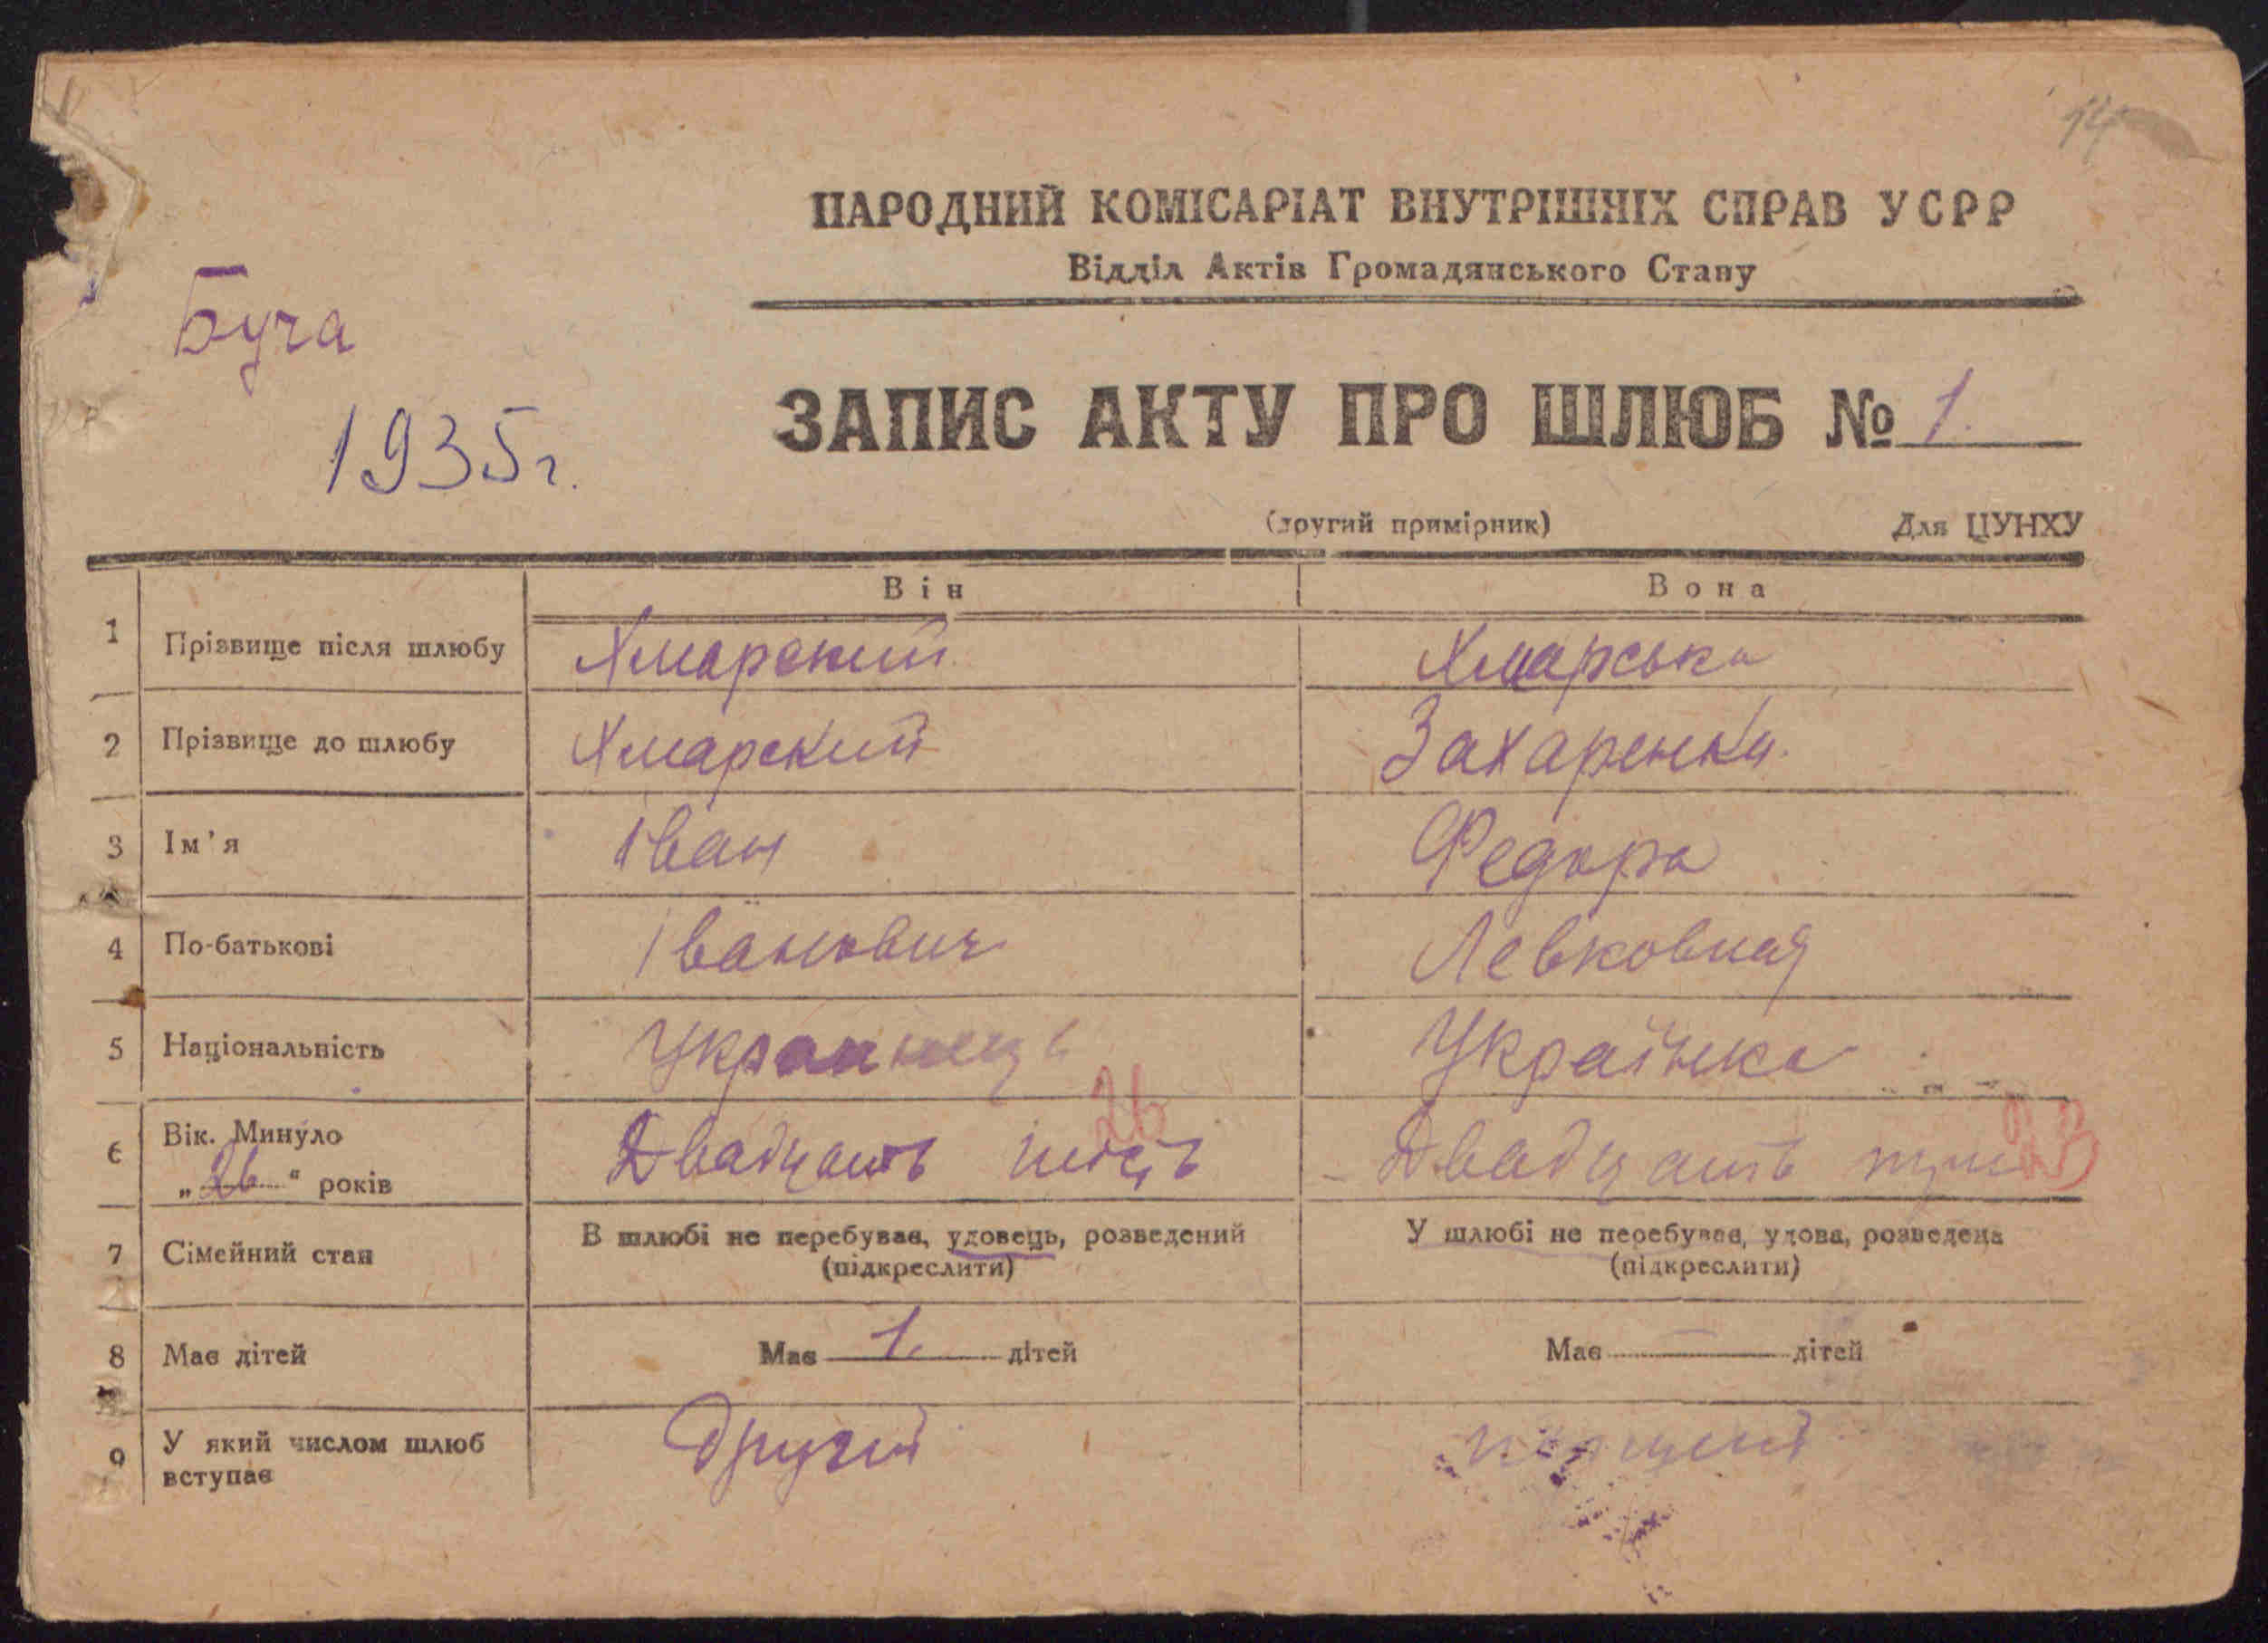 14
НАРОДНИЙ КОМІСАРІАТ ВНУТРІШНІХ СПРАВ УСРР
Відділ Актів Громадянського Стану
Буча
1935г.
ЗАПИС АКТУ ПРО ШЛЮБ № 1.
(другий примірник) Для ЦУНХУ
Він Вона
1 Прізвище після шлюбу Хмарский Хмарська
2 Прізвище до шлюбу Хмарский Захаренко
3 Ім'я Іван Федора
4 По-батькові Іванович Левковная
5 Національність Украинець Українка
26 23
6 Вік. Минуло Двадцать шість Двадцать три
„26“ років
7 Сімейний стан В шлюбі не перебував, удовець, розведений У шлюбі не перебував, удова, розведена
(підкреслити) (підкреслити)
8 Має дітей Має 1. дітей Має — дітей
9 У який числом шлюб Другий перший
вступає